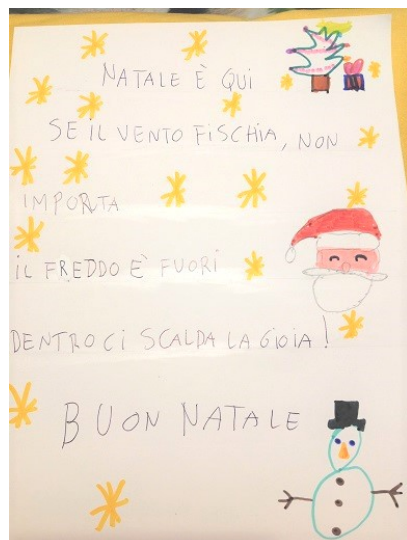 NATALE È QUI
SE IL VENTO FISCHIA, NON
IMPORTA
IL FREDDO È FUORI
DENTRO CI SCALDA LA GIOIA!
BUON NATALE